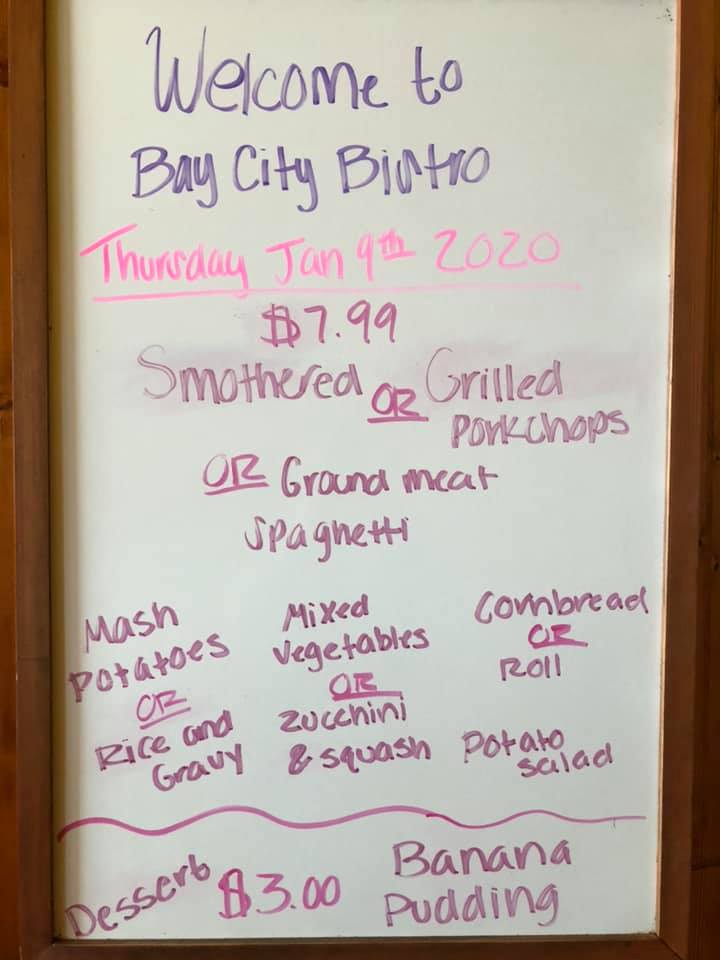 Welcome to
Bay City Bistro
Thursday Jan 9th 2020
$7.99
Smothered OR Grilled
Porkchops
OR Ground meat
Spaghetti
Mash
Potatoes
OR
Rice and
Gravy
Mixed
Vegetables
OR
Zucchini
& squash
Cornbread
OR
Roll
Potato
salad
Dessert $3.00
Banana
Pudding